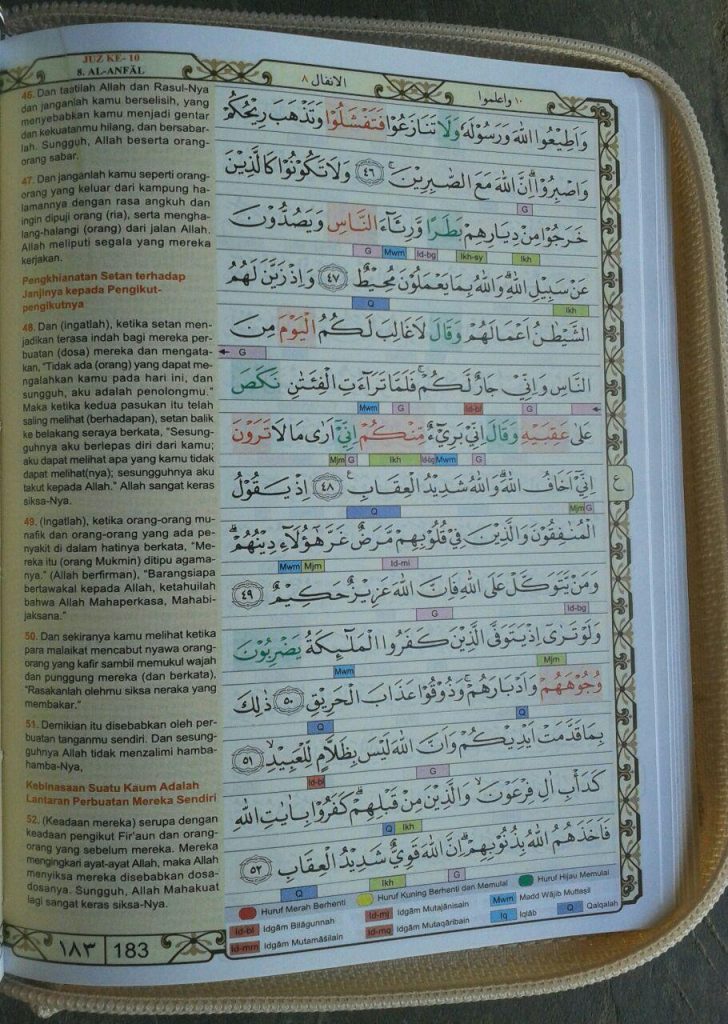 JUZ KE- 10
8. AL-ANFĀL
الانفال ٨
واعلموا ١٠
46. Dan taatilah Allah dan Rasul-Nya
dan janganlah kamu berselisih, yang
menyebabkan kamu menjadi gentar
dan kekuatanmu hilang, dan bersabar-
lah. Sungguh, Allah beserta orang-
orang sabar.
47. Dan janganlah kamu seperti orang-
orang yang keluar dari kampung ha-
lamannya dengan rasa angkuh dan
ingin dipuji orang (ria), serta mengha-
lang-halangi (orang) dari jalan Allah.
Allah meliputi segala yang mereka
kerjakan.
Pengkhianatan Setan terhadap
Janjinya kepada Pengikut-
pengikutnya
48. Dan (ingatlah), ketika setan men-
jadikan terasa indah bagi mereka per-
buatan (dosa) mereka dan mengata-
kan, "Tidak ada (orang) yang dapat me-
ngalahkan kamu pada hari ini, dan
sungguh, aku adalah penolongmu."
Maka ketika kedua pasukan itu telah
saling melihat (berhadapan), setan balik
ke belakang seraya berkata, "Sesung-
guhnya aku berlepas diri dari kamu;
aku dapat melihat apa yang kamu tidak
dapat melihat(nya); sesungguhnya aku
takut kepada Allah." Allah sangat keras
siksa-Nya.
49. (Ingatlah), ketika orang-orang mu-
nafik dan orang-orang yang ada pe-
nyakit di dalam hatinya berkata, "Me-
reka itu (orang Mukmin) ditipu agama-
nya." (Allah berfirman), "Barangsiapa
bertawakal kepada Allah, ketahuilah
bahwa Allah Mahaperkasa, Mahabi-
jaksana."
50. Dan sekiranya kamu melihat ketika
para malaikat mencabut nyawa orang-
orang yang kafir sambil memukul wajah
dan punggung mereka (dan berkata),
"Rasakanlah olehmu siksa neraka yang
membakar."
51. Demikian itu disebabkan oleh per-
buatan tanganmu sendiri. Dan sesung-
guhnya Allah tidak menzalimi hamba-
hamba-Nya,
Kebinasaan Suatu Kaum Adalah
Lantaran Perbuatan Mereka Sendiri
52. (Keadaan mereka) serupa dengan
keadaan pengikut Fir'aun dan orang-
orang yang sebelum mereka. Mereka
mengingkari ayat-ayat Allah, maka Allah
menyiksa mereka disebabkan dosa-
dosanya. Sungguh, Allah Mahakuat
lagi sangat keras siksa-Nya.
وَاَطِيْعُوا اللّٰهَ وَرَسُوْلَهٗ وَلَا تَنَازَعُوْا فَتَفْشَلُوْا وَتَذْهَبَ رِيْحُكُمْ
وَاصْبِرُوْاۗ اِنَّ اللّٰهَ مَعَ الصّٰبِرِيْنَۚ ٤٦ وَلَا تَكُوْنُوْا كَالَّذِيْنَ
G
خَرَجُوْا مِنْ دِيَارِهِمْ بَطَرًا وَّرِئَاۤءَ النَّاسِ وَيَصُدُّوْنَ
G Mwm Id-bg Ikh-sy Ikh
عَنْ سَبِيْلِ اللّٰهِۗ وَاللّٰهُ بِمَا يَعْمَلُوْنَ مُحِيْطٌ ٤٧ وَاِذْ زَيَّنَ لَهُمُ
Q Ikh
الشَّيْطٰنُ اَعْمَالَهُمْ وَقَالَ لَا غَالِبَ لَكُمُ الْيَوْمَ مِنَ
G
النَّاسِ وَاِنِّيْ جَارٌ لَّكُمْۚ فَلَمَّا تَرَاۤءَتِ الْفِئَتٰنِ نَكَصَ
Mwm G Id-bl G
عَلٰى عَقِبَيْهِ وَقَالَ اِنِّيْ بَرِيْۤءٌ مِّنْكُمْ اِنِّيْٓ اَرٰى مَا لَا تَرَوْنَ
Mjm G Ikh Id-bg Mwm G
اِنِّيْٓ اَخَافُ اللّٰهَۗ وَاللّٰهُ شَدِيْدُ الْعِقَابِۚ ٤٨ اِذْ يَقُوْلُ
Q Mjm G
الْمُنٰفِقُوْنَ وَالَّذِيْنَ فِيْ قُلُوْبِهِمْ مَّرَضٌ غَرَّ هٰٓؤُلَاۤءِ دِيْنُهُمْۗ
Mwm Mjm Id-mi
وَمَنْ يَّتَوَكَّلْ عَلَى اللّٰهِ فَاِنَّ اللّٰهَ عَزِيْزٌ حَكِيْمٌ ٤٩
G Id-bg
وَلَوْ تَرٰٓى اِذْ يَتَوَفَّى الَّذِيْنَ كَفَرُوا الْمَلٰۤىِٕكَةُ يَضْرِبُوْنَ
Mwm Mjm
وُجُوْهَهُمْ وَاَدْبَارَهُمْۚ وَذُوْقُوْا عَذَابَ الْحَرِيْقِ ٥٠ ذٰلِكَ
Q Q
بِمَا قَدَّمَتْ اَيْدِيْكُمْ وَاَنَّ اللّٰهَ لَيْسَ بِظَلَّامٍ لِّلْعَبِيْدِۙ ٥١
Id-bl G
كَدَأْبِ اٰلِ فِرْعَوْنَۙ وَالَّذِيْنَ مِنْ قَبْلِهِمْۗ كَفَرُوْا بِاٰيٰتِ اللّٰهِ
Q Ikh
فَاَخَذَهُمُ اللّٰهُ بِذُنُوْبِهِمْۗ اِنَّ اللّٰهَ قَوِيٌّ شَدِيْدُ الْعِقَابِ ٥٢
Q Ikh G
ع
Huruf Merah Berhenti Huruf Kuning Berhenti dan Memulai Huruf Hijau Memulai
Id-bl Idgām Bilāgunnah Id-mj Idgām Mutajānisain Mwm Madd Wājib Muttaṣil
Id-mm Idgām Mutamāṡilain Id-mq Idgām Mutaqāribain Iq Iqlāb Q Qalqalah
١٨٣ 183